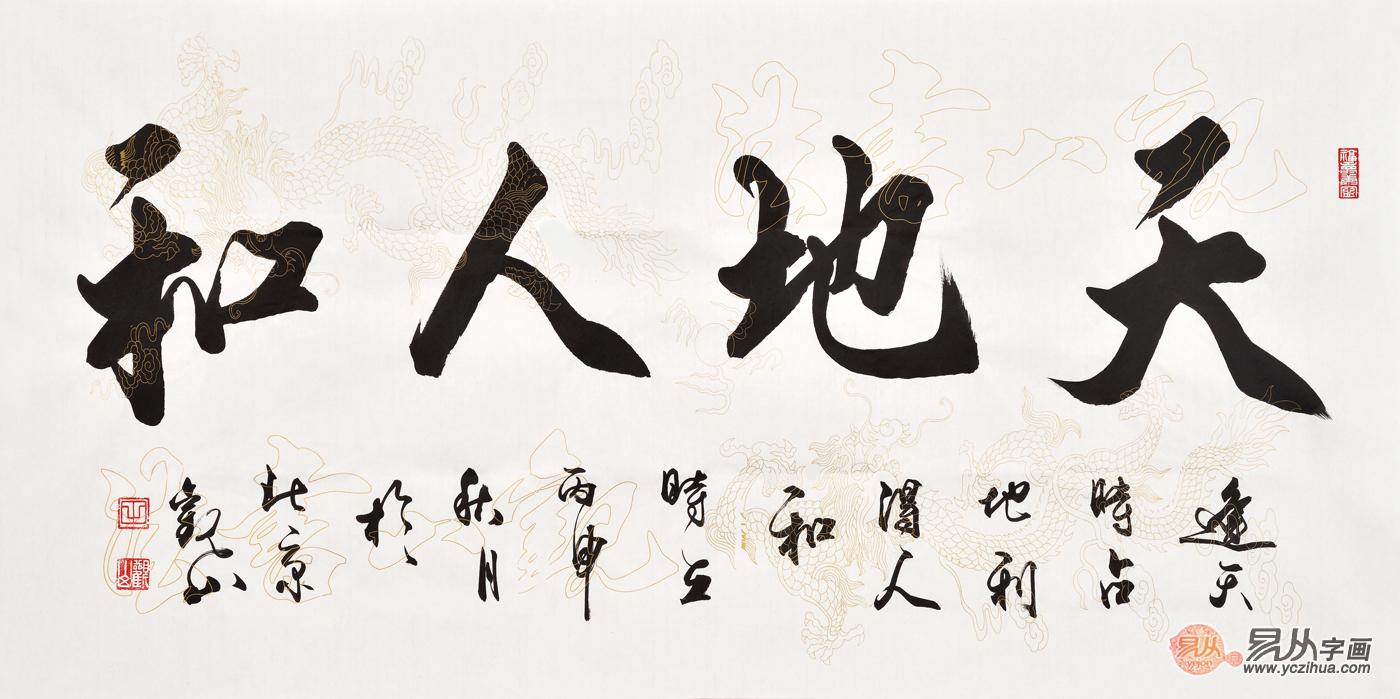 天地人和
逢天
時占
地利
得人
和
時在
丙申
秋月
於
北京
觀山
易从
易从字画
www.yczihua.com